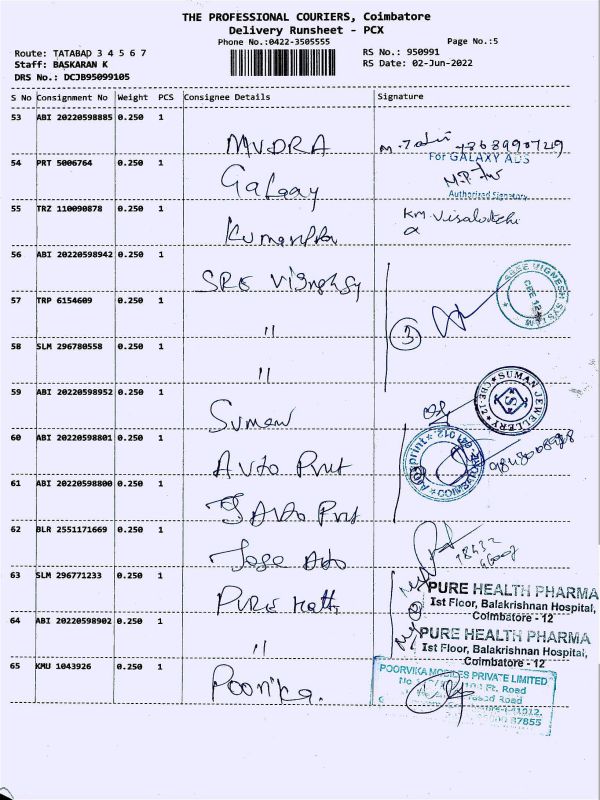 THE PROFESSIONAL COURIERS, Coimbatore
Delivery Runsheet - PCX
Phone No.:0422-3505555
Page No.:5
Route: TATABAD 3 4 5 6 7
RS No.: 950991
Staff: BASKARAN K
RS Date: 02-Jun-2022
DRS No.: DCJB95099105
S No Consignment No Weight PCS Consignee Details Signature
53 ABI 20220598885 0.250 1
MUDRA
For GALAXY ADS
54 PRT 5006764 0.250 1
Galaxy
Authorised Signatory
55 TRZ 110090878 0.250 1
Km Visalatchi
56 ABI 20220598942 0.250 1
SREE VIGNESH SYSTEM
57 TRP 6154609 0.250 1
"
3
58 SLM 296780558 0.250 1
"
59 ABI 20220598952 0.250 1
Suman
SUMAN JEWELLERY
CBE-12
60 ABI 20220598801 0.250 1
Auto Print
641 012
COIMBATORE
61 ABI 20220598800 0.250 1
Auto Print
62 BLR 2551171669 0.250 1
63 SLM 296771233 0.250 1
Pure
PURE HEALTH PHARMA
Ist Floor, Balakrishnan Hospital,
Coimbatore - 12
64 ABI 20220598902 0.250 1
"
PURE HEALTH PHARMA
Ist Floor, Balakrishnan Hospital,
Coimbatore - 12
65 KMU 1043926 0.250 1
POORVIKA MOBILES PRIVATE LIMITED
Ft. Road
Road
87855